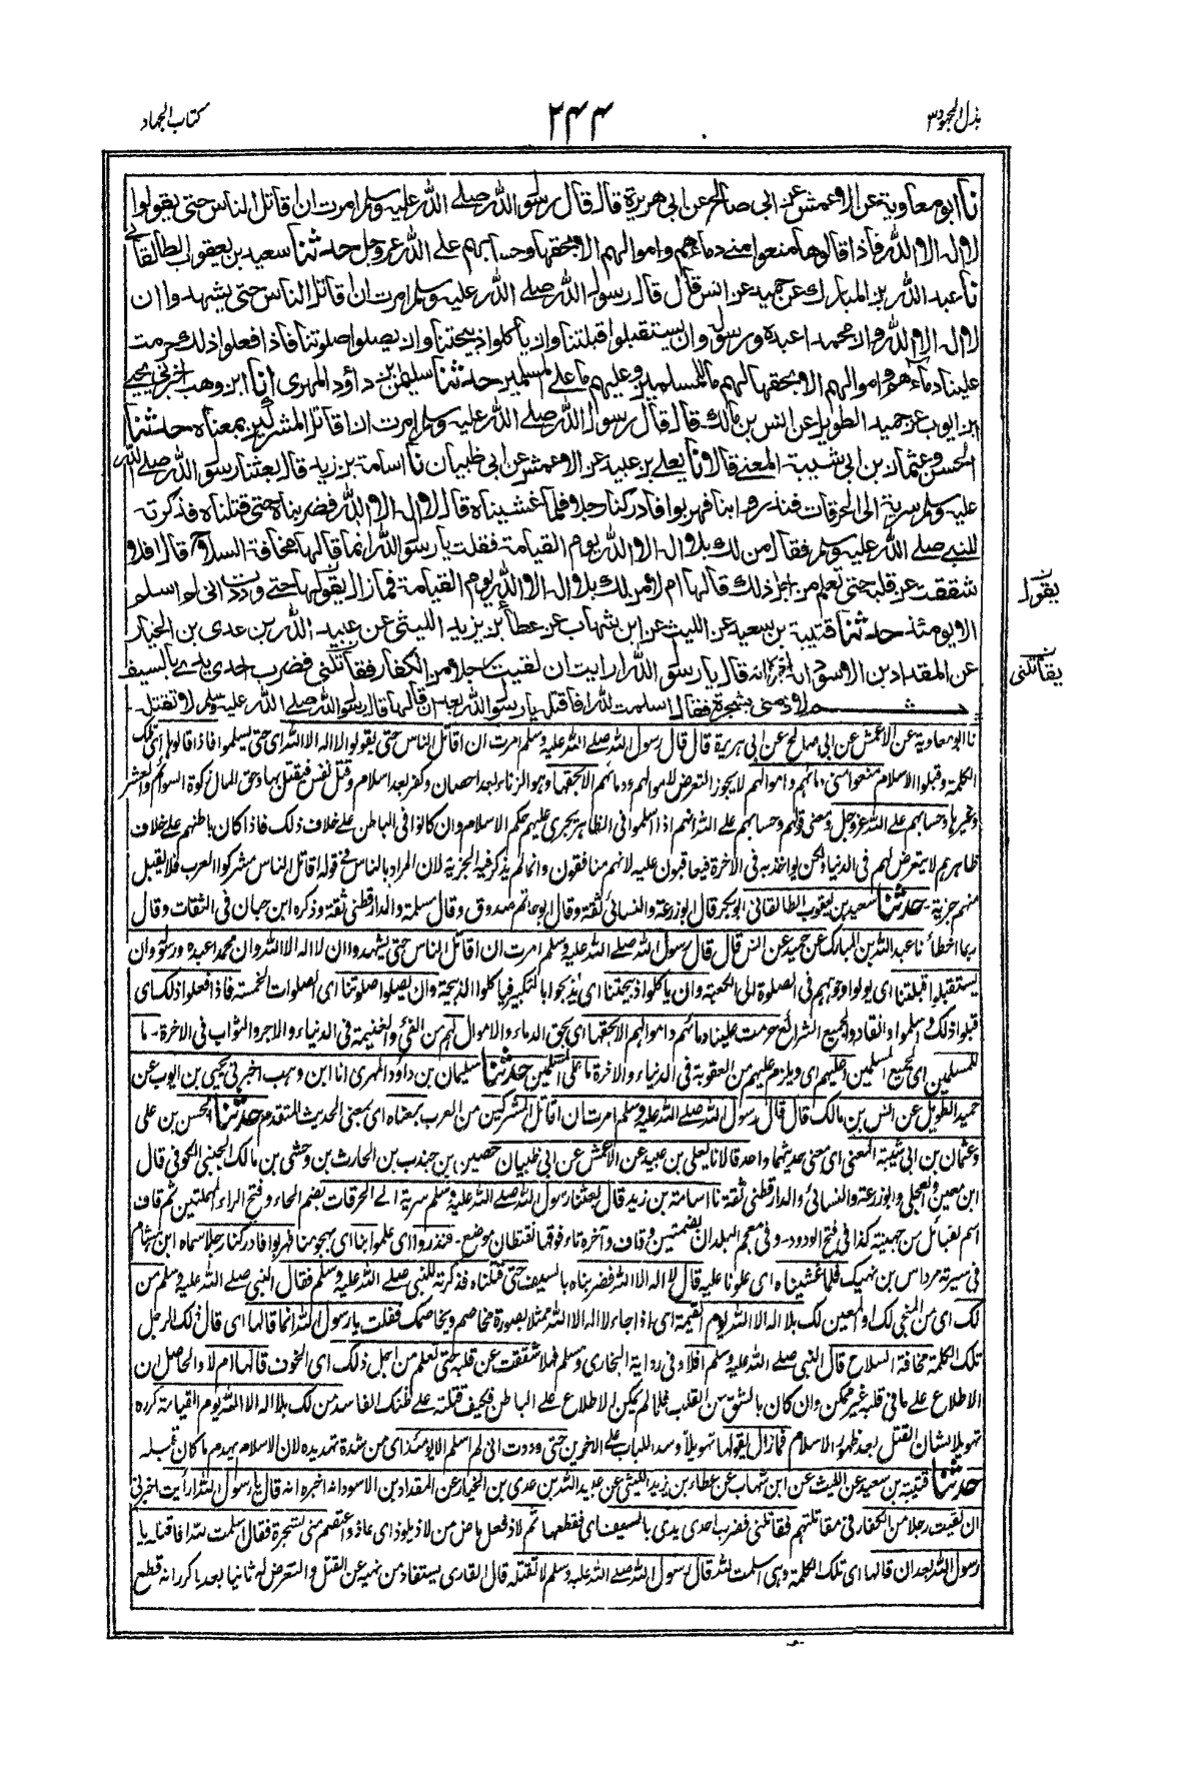 بذل المجهود ٣
٢٤٤
كتاب الجهاد
نا ابو معاوية عن الاعمش عن ابى صالح عن ابى هريرة قال قال رسول الله صلے الله عليه وسلم امرت ان اقاتل الناس حتى يقولوا
لا اله الا الله فاذا قالوها منعوا منى دماءهم واموالهم الا بحقها وحسابهم على الله عز وجل حدثنا سعيد بن يعقوب الطالقانى
نا عبد الله بن المبارك عن حميد عن انس قال قال رسول الله صلے الله عليه وسلم امرت ان اقاتل الناس حتى يشهدوا ان
لا اله الا الله وان محمدا عبده ورسوله وان يستقبلوا قبلتنا وان ياكلوا ذبيحتنا وان يصلوا صلوتنا فاذا فعلوا ذلك حرمت
علينا دماءهم واموالهم الا بحقها لهم ما للمسلمين وعليهم ما على المسلمين حدثنا سليمن بن داؤد المهرى انا ابن وهب اخبرنى يحيى
ابن ايوب عن حميد الطويل عن انس بن مالك قال قال رسول الله صلے الله عليه وسلم امرت ان اقاتل المشركين بمعناه حدثنا
الحسن وعثمان بن ابى شيبة المعنى قالا نا يعلى بن عبيد عن الاعمش عن ابى ظبيان نا اسامة بن زيد قال بعثنا رسول الله صلے الله
عليه وسلم سرية الى الحرقات فنذروا بنا فهربوا فادركنا رجلا فلما غشيناه قال لا اله الا الله فضربناه حتى قتلناه فذكرته
للنبى صلے الله عليه وسلم فقال من لك بلا اله الا الله يوم القيامة فقلت يا رسول الله انما قالها مخافة السلاح قال افلا
شققت عن قلبه حتى تعلم من اجل ذلك قالها ام لا من لك بلا اله الا الله يوم القيامة فما زال يقولها حتى وددت انى لم اسلم
يقول
الا يومئذ حدثنا قتيبة بن سعيد عن الليث عن ابن شهاب عن عطاء بن يزيد الليثى عن عبيد الله بن عدى بن الخيار
عن المقداد بن الاسود انه اخبره انه قال يا رسول الله ارايت ان لقيت رجلا من الكفار فقاتلنى فضرب احدى يدى بالسيف
يقاتلنى
ثم لاذ منى بشجرة فقال اسلمت لله افاقتله يا رسول الله بعد ان قالها قال رسول الله صلے الله عليه وسلم لا تقتله
نا ابو معاوية عن الاعمش عن ابى صالح عن ابى هريرة قال قال رسول الله صلے الله عليه وسلم امرت ان اقاتل الناس حتى يقولوا لا اله الا الله اى حتى يسلموا فاذا قالوها اى تلك
الكلمة وقبلوا الاسلام منعوا منى دمائهم واموالهم لا يجوز التعرض لاموالهم ودمائهم الا بحقها وهو الزناء بعد احصان وكفر بعد اسلام وقتل نفس فيقتل بها وحق المال زكوة السوائم والعشر
وغيرها وحسابهم على الله عز وجل ومعنى قولهم وحسابهم على الله انهم اذا اسلموا فى الظاهر يجرى عليهم حكم الاسلام وان كانوا فى الباطن على خلاف ذلك فاذا كان باطنهم على خلاف
ظاهرهم لا يتعرض لهم فى الدنيا ولكن يواخذ به فى الآخرة فيعاقبون عليه لانهم منافقون وانما لم يذكر فيه الجزية لان المراد بالناس فى قوله اقاتل الناس مشركوا العرب فلا يقبل
منهم جزية - حدثنا سعيد بن يعقوب الطالقانى ابو بكر قال ابو زرعة والنسائى ثقة وقال ابو حاتم صدوق وقال مسلمة والدارقطنى ثقة وذكره ابن حبان فى الثقات وقال
ربما اخطأ نا عبد الله بن المبارك عن حميد عن انس قال قال رسول الله صلے الله عليه وسلم امرت ان اقاتل الناس حتى يشهدوا ان لا اله الا الله وان محمدا عبده ورسوله وان
يستقبلوا قبلتنا اى يولوا وجوههم فى الصلوة الى الكعبة وان ياكلوا ذبيحتنا اى يذبحوا بالتكبير فياكلوا الذبيحة وان يصلوا صلوتنا اى الصلوات الخمسة فاذا فعلوا ذلك اى
قبلوا ذلك وسلموا وانقادوا لجميع الشرائع حرمت علينا دمائهم واموالهم الا بحقها اى بحق الدماء والاموال لهم من الفئ والغنيمة فى الدنياء والاجر والثواب فى الاخرة - ما
للمسلمين اى لجميع المسلمين وعليهم اى ويلزم عليهم من العقوبة فى الدنياء والاخرة ما على المسلمين حدثنا سليمان بن داؤد المهرى انا ابن وهب اخبرنى يحيى بن ايوب عن
حميد الطويل عن انس بن مالك قال قال رسول الله صلے الله عليه وسلم امرت ان اقاتل المشركين من العرب بمعناه اى بمعنى الحديث المتقدم حدثنا الحسن بن على
وعثمان بن ابى شيبة المعنى اى معنى حديثهما واحد قالا نا يعلى بن عبيد عن الاعمش عن ابى ظبيان حصين بن جندب بن الحارث بن وحشى بن مالك الجنبى الكوفى قال
ابن معين والعجلى وابو زرعة والنسائى والدارقطنى ثقة نا اسامة بن زيد قال بعثنا رسول الله صلے الله عليه وسلم سرية الے الحرقات بضم الحاء وفتح الراء المهملتين ثم قاف
اسم لقبائل من جهينة كذا فى فتح الودود - وفى معجم البلدان بضمتين وقاف وآخره تاء فوقها نقطتان موضع - فنذروا اى علموا بنا اى بهجومنا فهربوا فادركنا رجلا سماه ابن هشام
فى سيرته مرداس بن نهيك فلما غشيناه اى علونا عليه قال لا اله الا الله فضربناه بالسيف حتى قتلناه فذكرته للنبى صلے الله عليه وسلم فقال النبى صلے الله عليه وسلم من
لك اى من المنجى لك والمعين لك بلا اله الا الله يوم القيمة اى اذا جاء لا اله الا الله ممثلا بصورة مخاصم ويخاصمك فقلت يا رسول الله انما قالها اى قال ذلك الرجل
تلك الكلمة مخافة السلاح قال النبى صلے الله عليه وسلم افلا وفى رواية البخارى ومسلم فهلا شققت عن قلبه حتى تعلم من اجل ذلك اى الخوف قالها ام لا والحاصل ان
الاطلاع على ما فى قلبه غير ممكن وان كان بالشق من القلب فلما لم يكن الاطلاع على الباطن فكيف قتلته على ظنك الفاسد من لك بلا اله الا الله يوم القيامة كرره
تهويلا بشان القتل بعد ظهور الاسلام فما زال يقولها تهويلا وسد اللباب على الآخرين حتى وددت انى لم اسلم الا يومئذ اى من شدة تهديده لان الاسلام يهدم ما كان قبله
حدثنا قتيبة بن سعيد عن الليث عن ابن شهاب عن عطاء بن يزيد الليثى عن عبيد الله بن عدى بن الخيار عن المقداد بن الاسود انه اخبره انه قال يا رسول الله ارأيت اخبرنى
ان لقيت رجلا من الكفار فى مقاتلتهم فقاتلنى فضرب احدى يدى بالسيف اى فقطعها ثم لاذ فعل ماض من لاذ يلوذ اى عاذ واعتصم منى بشجرة فقال اسلمت لله افاقتله يا
رسول الله بعد ان قالها اى تلك الكلمة وهى اسلمت لله قال رسول الله صلے الله عليه وسلم لا تقتله قال القارى يستفاد من نهيه عن القتل والتعرض له ثانيا بعد ما كرر انه قطع